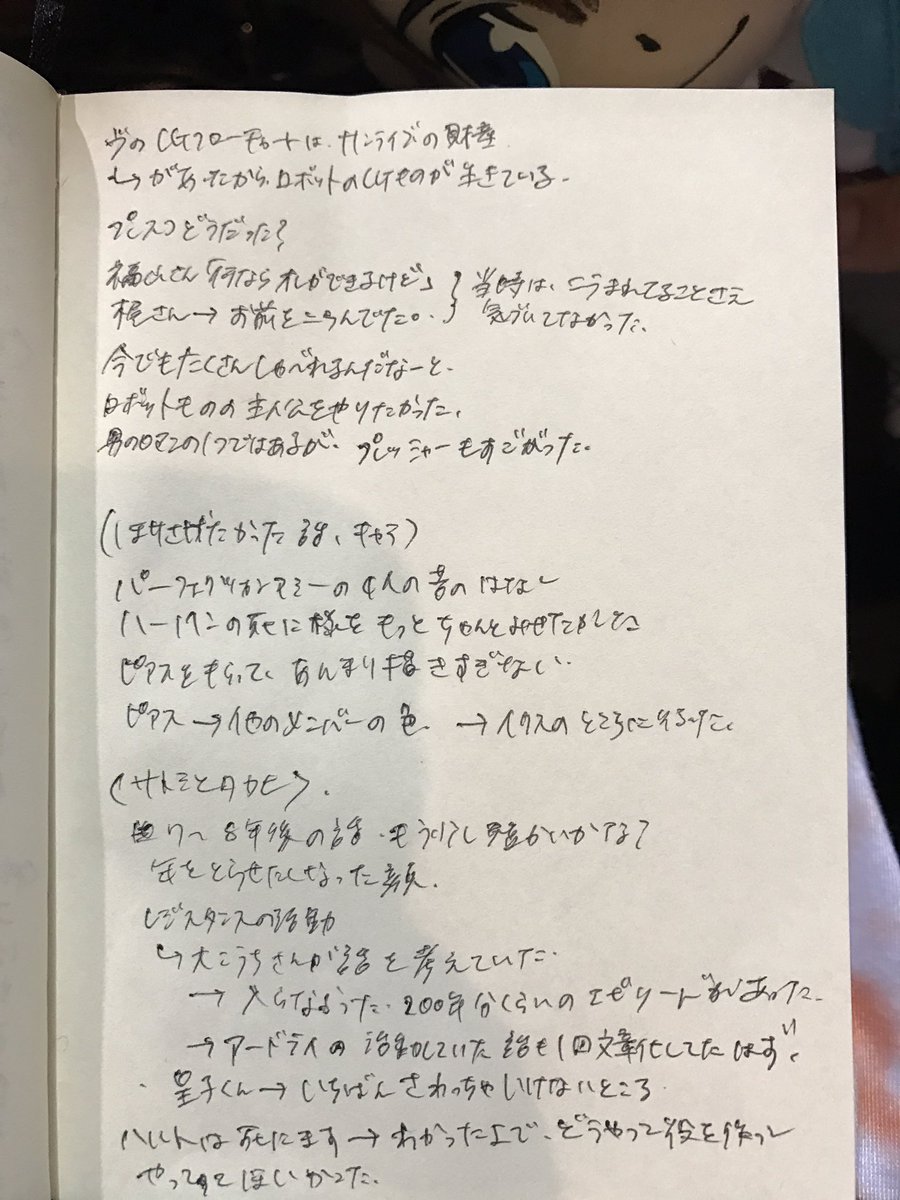 ヴのCGフローチャートは、サンライズの財産
↳があったから、ロボットのCGものが生きている。
プレスコどうだった?
福山さん「何ならオレができるけど」
梶さん→お前をニラんでた。
当時は、にらまれてることさえ
気づいてなかった。
今でもたくさんしゃべれるんだなーと。
ロボットものの主人公をやりたかった、
男のロマンの1つではあるが、プレッシャーもすごかった。
パーフェクツォンアミーの4人の昔のはなし
ハーノインの死に様をもっとちゃんとみせたかった
ピアスをもらって、あんまり描きすぎない
ピアス→他のメンバーの色 →イクスのところに
(サトミとタカヒ)
7〜8年後の話・もう少し
年をとらせたくなった
レジスタンスの活動
↳大こうちさんが話を考えていた
→入らなかった 200年分くらいのエピソードがあった
→アードライの活動していた話も1回文章化してたはず
・皇子くん→いちばんさわっちゃいけないところ
ハルトは死にます→わかった上で、どうやって役を作って
やってってほしいかった。